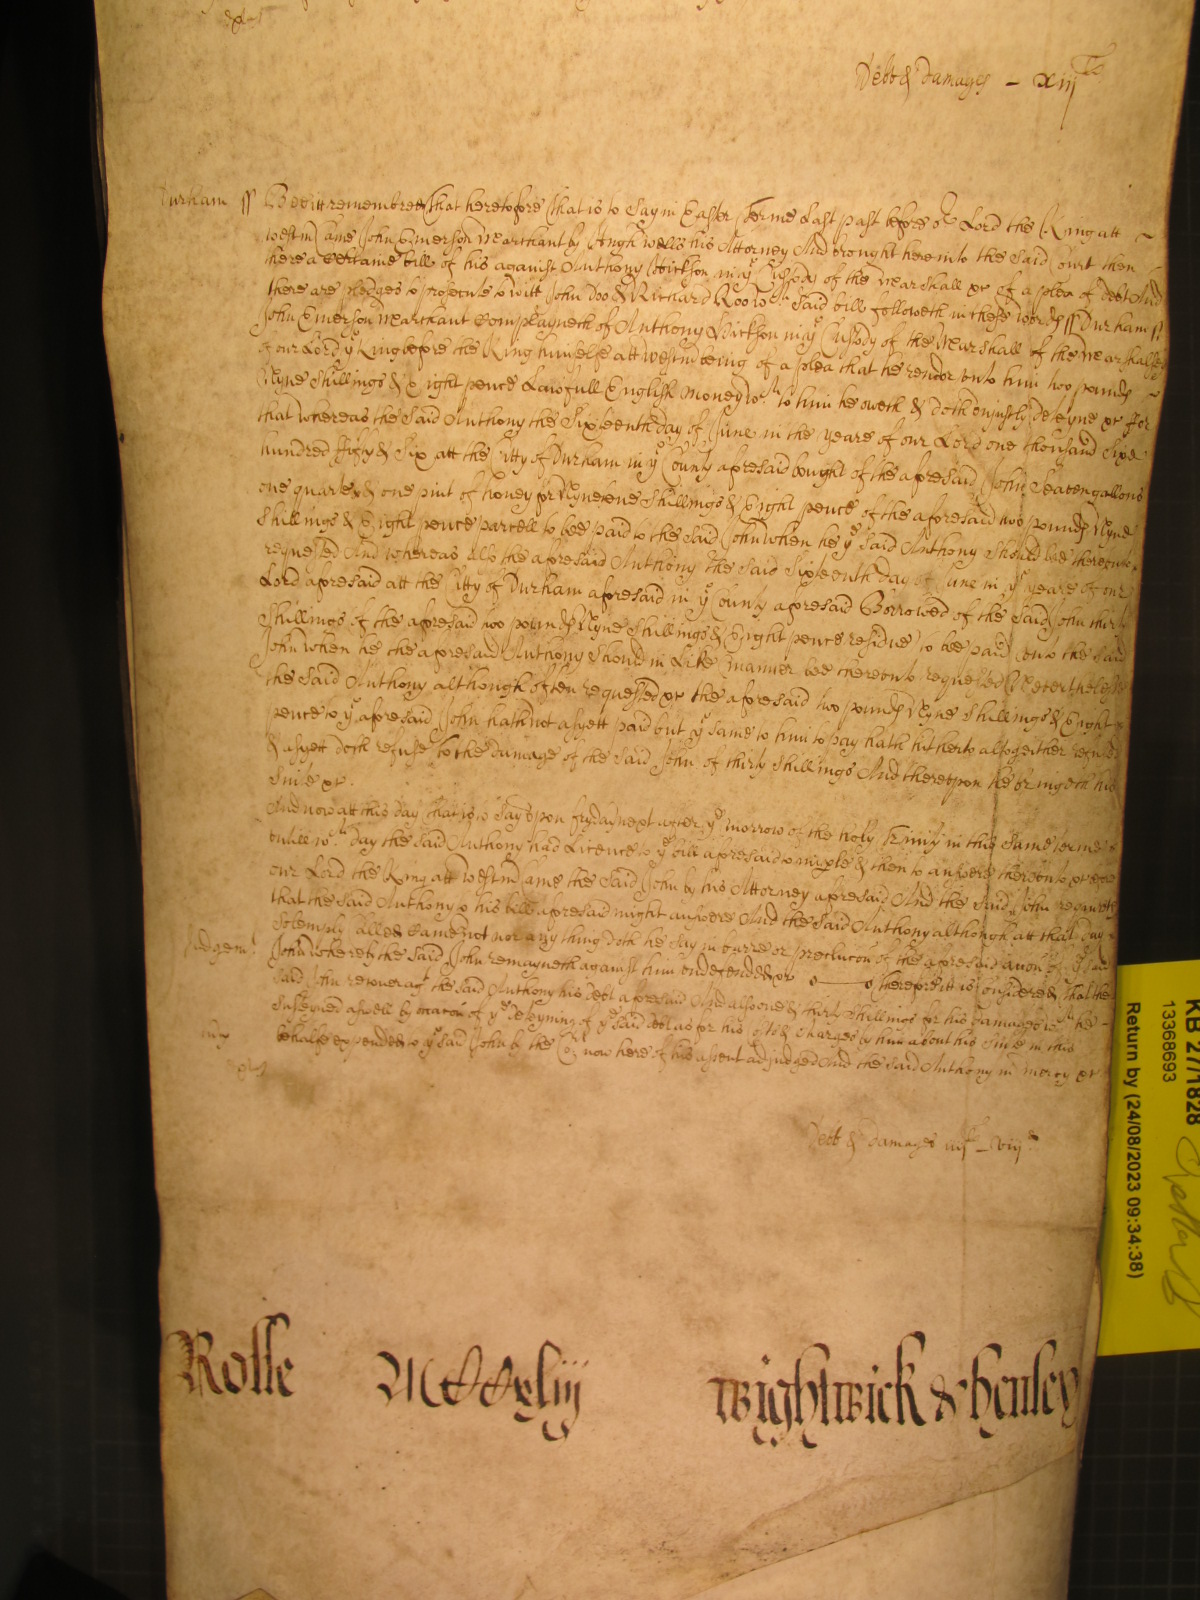 Debt & Damages – xiij
Durham ss Bee itt remembred that heretofore that is to say in Easter Terme Last past before or Lord the King att
Westm Came John Emerson Mearchant by Hugh Wells his Attorney And brought here into the said Court then
there a certaine bill of his against Anthony Hickson in ye Custody of the Marshall &c of a plea of debt And
there are pledges to prosecute to witt John Doo & Richard Roo wch said bill followeth in these words ss Durham ss
John Emerson Mearchant Complayneth of Anthony Hickson in ye Custody of the Marshall of the Marshallsey
of our Lord ye King before the King himselfe att Westm being of a plea that he render unto him two pounds
Nyne Shillings & Eight pence Lawfull English money wch to him he oweth & doth unjustly deteyne &c For
that whereas the said Anthony the Sixteenth day of June in the yeare of our Lord one thousand Sixe
hundred Fifty & Six att the Citty of Durham in ye County aforesaid bought of the aforesaid John Seaven gallons
one quarte & one pint of honey for Nyneteene Shillings & Eight pence of the aforesaid two pounds Nyne
Shillings & Eight pence parcell to bee paid to the said John when he ye said Anthony should bee thereunto
requested And whereas also the aforesaid Anthony the said Sixteenth day of June in ye yeare of our
Lord aforesaid att the Citty of Durham aforesaid in ye County aforesaid Borrowed of the said John thirty
Shillings of the aforesaid two pounds Nyne Shillings & Eight pence residue to bee paid unto the said
John when he the aforesaid Anthony should in Like manner bee thereunto requested Neverthelesse
the said Anthony although often requested &c the aforesaid two pounds Nyne Shillings & Eight
pence to ye aforesaid John hath not as yett paid but ye same to him to pay hath hitherto altogeither refused
& as yett doth refuse to the damage of the said John of thirty Shillings And thereupon he bringeth his
Suite &c.
And now att this day that is to say upon fryday next after ye morrow of the holy Trinity in this same terme
untill wch day the said Anthony had Licence to ye bill aforesaid to imparle & then to answere thereunto &c before
our Lord the King att Westm Came the said John by his Attorney aforesaid And the said John requireth
that the said Anthony to his bill aforesaid might answere And the said Anthony although att that day
Solemnly called Came not nor any thing doth he say in barre or preclucon of the aforesaid accon of ye said
Judgemt John whereby the said John remayneth against him undefended &c Therefore itt is Considered that the
said John recover agt the said Anthony his debt aforesaid And alsoe thirty Shillings for his damages wch he
Susteyned aswell by reason of ye deteyning of ye said debt as for his Costs & Charges by him about his Suite in this
mcy behalfe expended to ye said John by the Cort now here of his assent adjudged And the said Anthony in mercy &c
Debt & Damages iij – viij
Rolle MCCxliij Wightwick & Henley
KB 27/1828
13368693
Return by (24/08/2023 09:34:38)